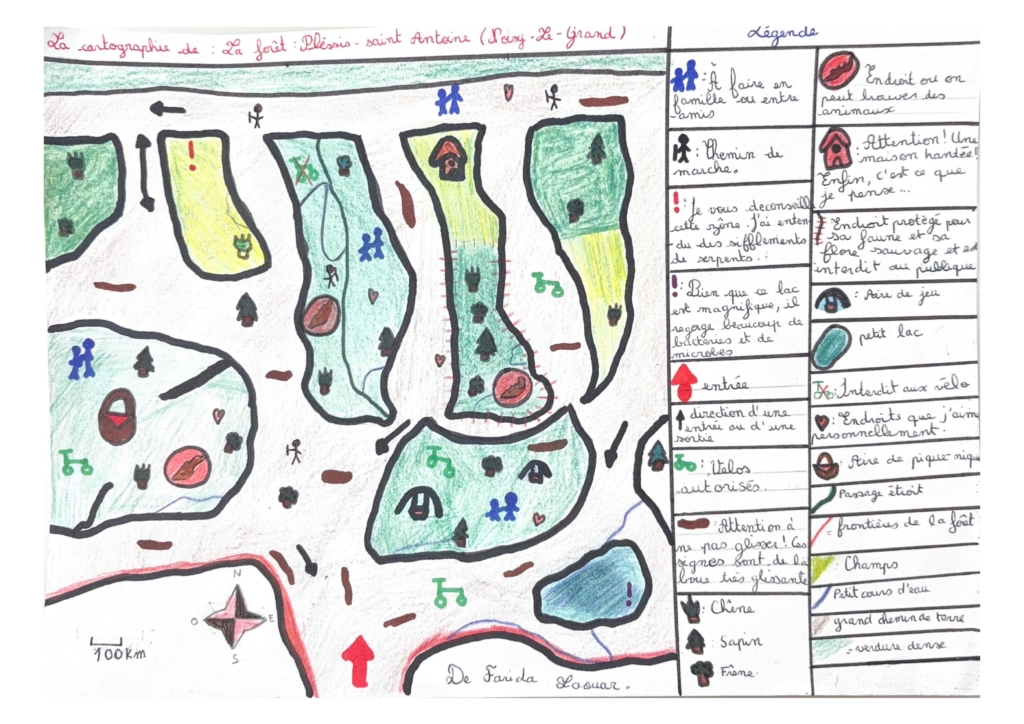 La cartographie de : La forêt : Plèssis-saint Antoine (Noisy-Le-Grand)
Légende
: À faire en
famille ou entre
amis
: Chemin de
marche.
: Je vous deconseill
cette zône. J'ai enten-
du des sifflements
de serpents..
: Bien que ce lac
est magnifique, il
regorge beaucoup de
bactéries et de
microbes
entrée
direction d'une
entrée ou d'une
sortie
: Vélos
autorisés.
: Attention à
ne pas glisser! Ces
signes sont de la
boue très glissante
: Chêne
: Sapin
: Frêne.
: Endroit ou on
peut trouver des
animaux
: Attention! Une
maison hantée!
Enfin, c'est ce que
je pense...
: Endroit protégé pour
sa faune et sa
flore sauvage et est
interdit au publique
: Aire de jeu
petit lac
: Interdit aux vélo
: Endroits que j'aim
personnellement.
: Aire de pique-nique
Passage étroit
= frontières de la forêt
: Champs
Petit cours d'eau
grand chemin de terre
= verdure dense
!
!
N
O
E
S
100 Km
De Farida Laouar.